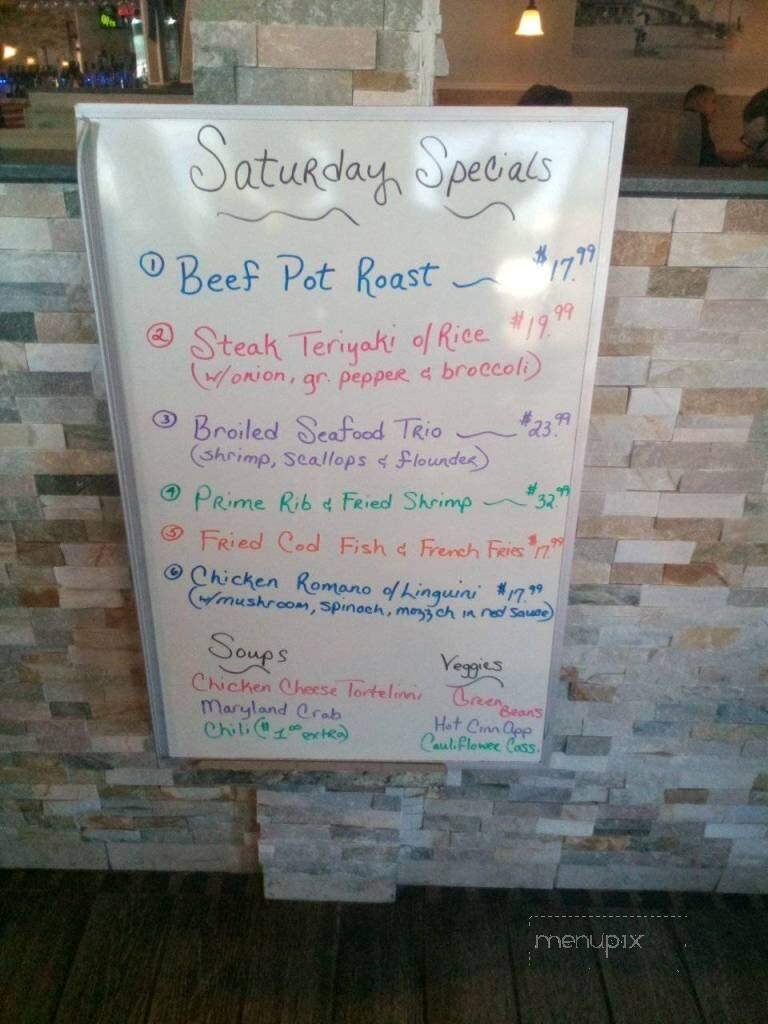 Saturday Specials
① Beef Pot Roast $17.99
② Steak Teriyaki o/Rice $19.99
(w/onion, gr. pepper & broccoli)
③ Broiled Seafood Trio $23.99
(shrimp, scallops & flounder)
④ Prime Rib & Fried Shrimp $32.99
⑤ Fried Cod Fish & French Fries $17.99
⑥ Chicken Romano o/Linguini $17.99
(w/mushroom, spinach, mozz ch in red sauce)
Soups
Chicken Cheese Tortelinni
Maryland Crab
Chili ($1.00 extra)
Veggies
Green
Beans
Hot Cinn App
Cauliflower Cass.
menupix